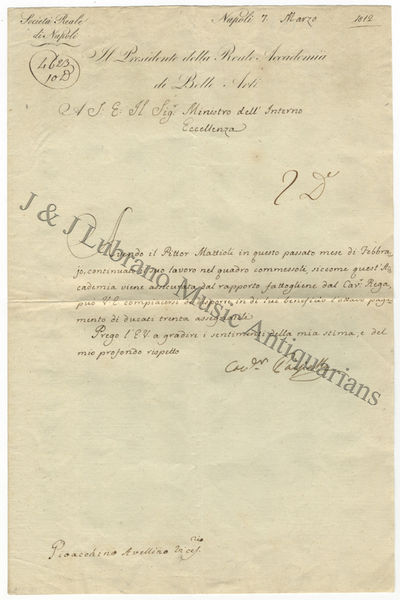 Società Reale
di Napoli
Napoli 7. Marzo 1812
4623
10 D
Il Presidente della Reale Accademia
di Belle Arti
A S. E. Il Sigr. Ministro dell'Interno
Eccellenza
Avendo il Pittor Mattioli in questo passato mese di Febbra-
jo, continuato il suo lavoro nel quadro commessoli, siccome quest'Ac-
cademia viene assicurata dal rapporto fattogliene dal Cavr. Rega,
può V. E. compiacersi di disporre in di lui beneficio l'ottavo paga-
mento di ducati trenta assegnatoli.
Prego l'E. V. a gradire i sentimenti della mia stima, e del
mio profondo rispetto
Gioacchino Avellino
J & J Lubrano Music Antiquarians